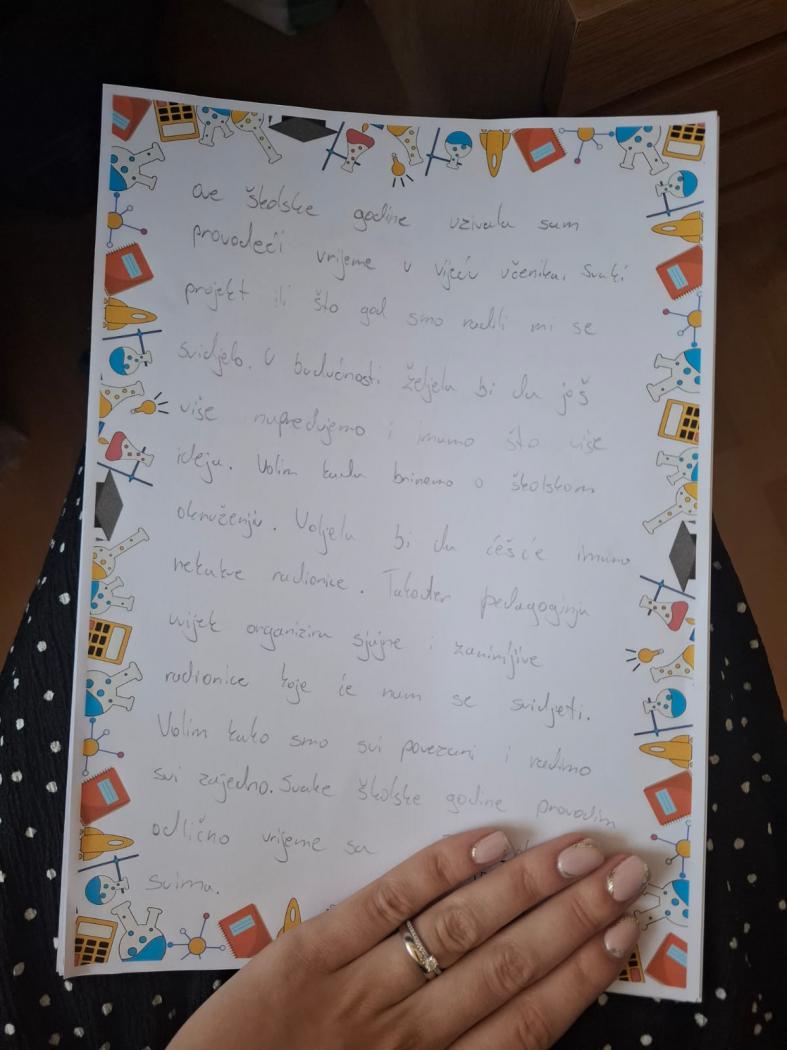 Ove školske godine uzivala sam
provodeći vrijeme u vijeću učenika. Svaki
projekt ili što god smo radili mi se
svidjelo. U budućnosti željela bi da još
više napredujemo i imamo što više
ideja. Volim kada brinemo o školskom
okruženju. Voljela bi da ćešće imamo
nekakve radionice. Također pedagoginja
uvijek organizira sjajne i zanimljive
radionice koje će nam se svidjeti.
Volim kako smo svi povezani i radimo
svi zajedno. Svake školske godine provodim
odlično vrijeme sa
svima.